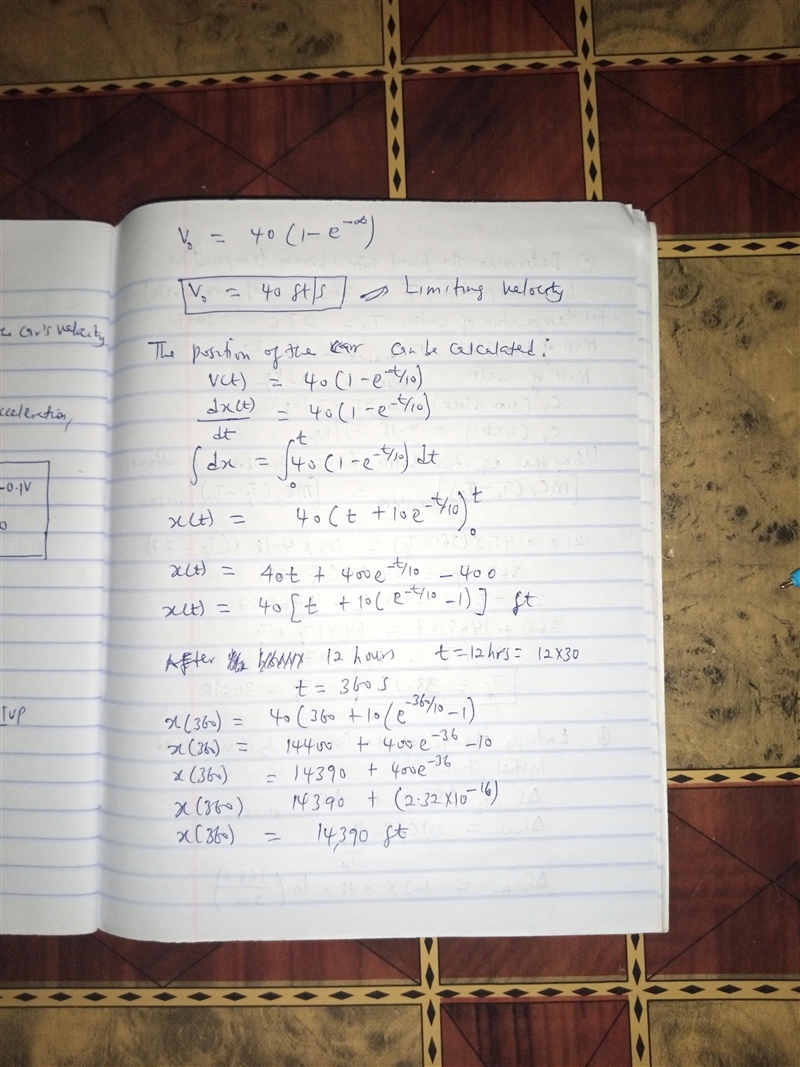 V₀ = 40 (1 - e^-∞)
V₀ = 40 ft/s → Limiting velocity
the car's velocity
The position of the car can be calculated:
V(t) = 40 (1 - e^-t/10)
dx(t)/dt = 40 (1 - e^-t/10)
∫ dx = ∫₀^t 40 (1 - e^-t/10) dt
-0.1V
x(t) = 40 (t + 10e^-t/10)₀^t
x(t) = 40t + 400e^-t/10 - 400
x(t) = 40 [t + 10(e^-t/10 - 1)] ft
After 12 hours t = 12 hrs = 12 x 30
t = 360 s
x(360) = 40 (360 + 10(e^-360/10 - 1)
x(360) = 14400 + 400e^-36 - 10
x(360) = 14390 + 400e^-36
x(360) 14390 + (2.32 x 10^-16)
x(360) = 14,390 ft